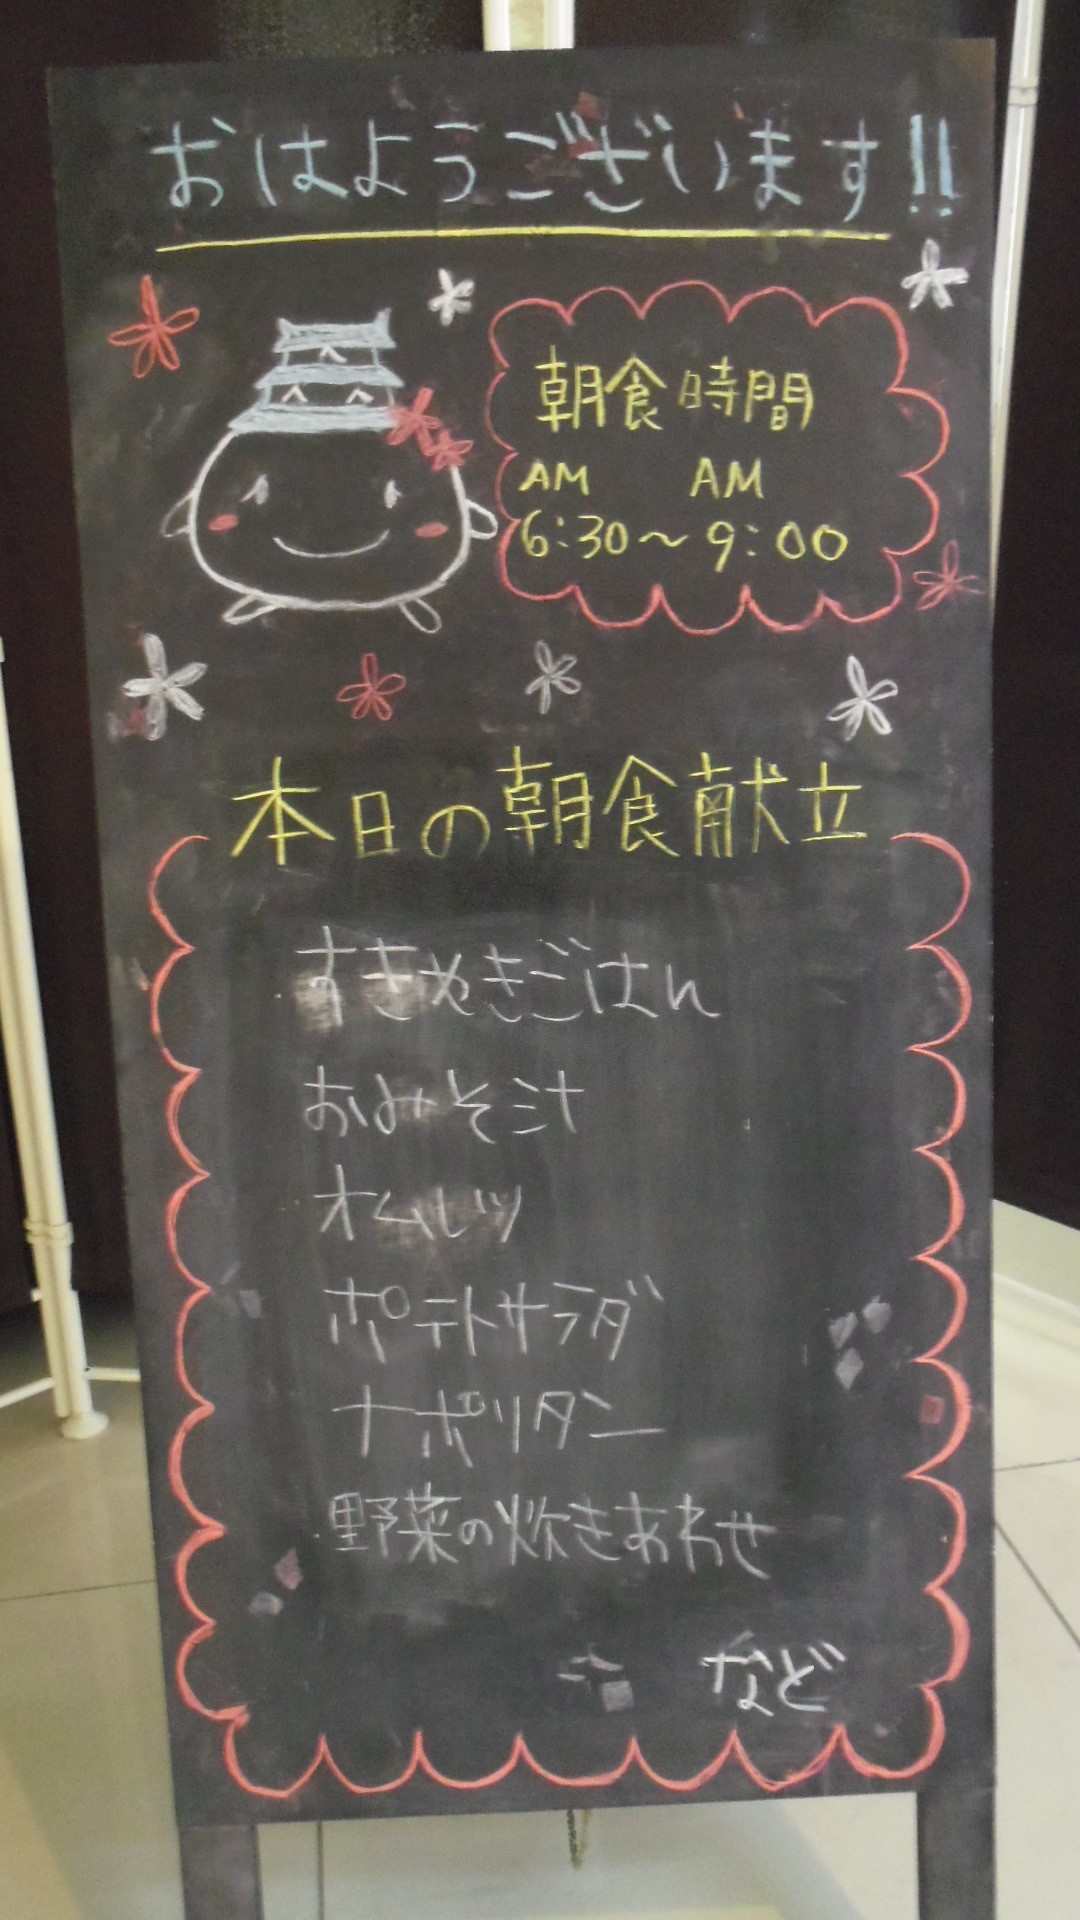 おはようございます!!
朝食時間
AM AM
6:30〜9:00
本日の朝食献立
すきやきごはん
おみそ汁
オムレツ
ポテトサラダ
ナポリタン
野菜の炊きあわせ
など